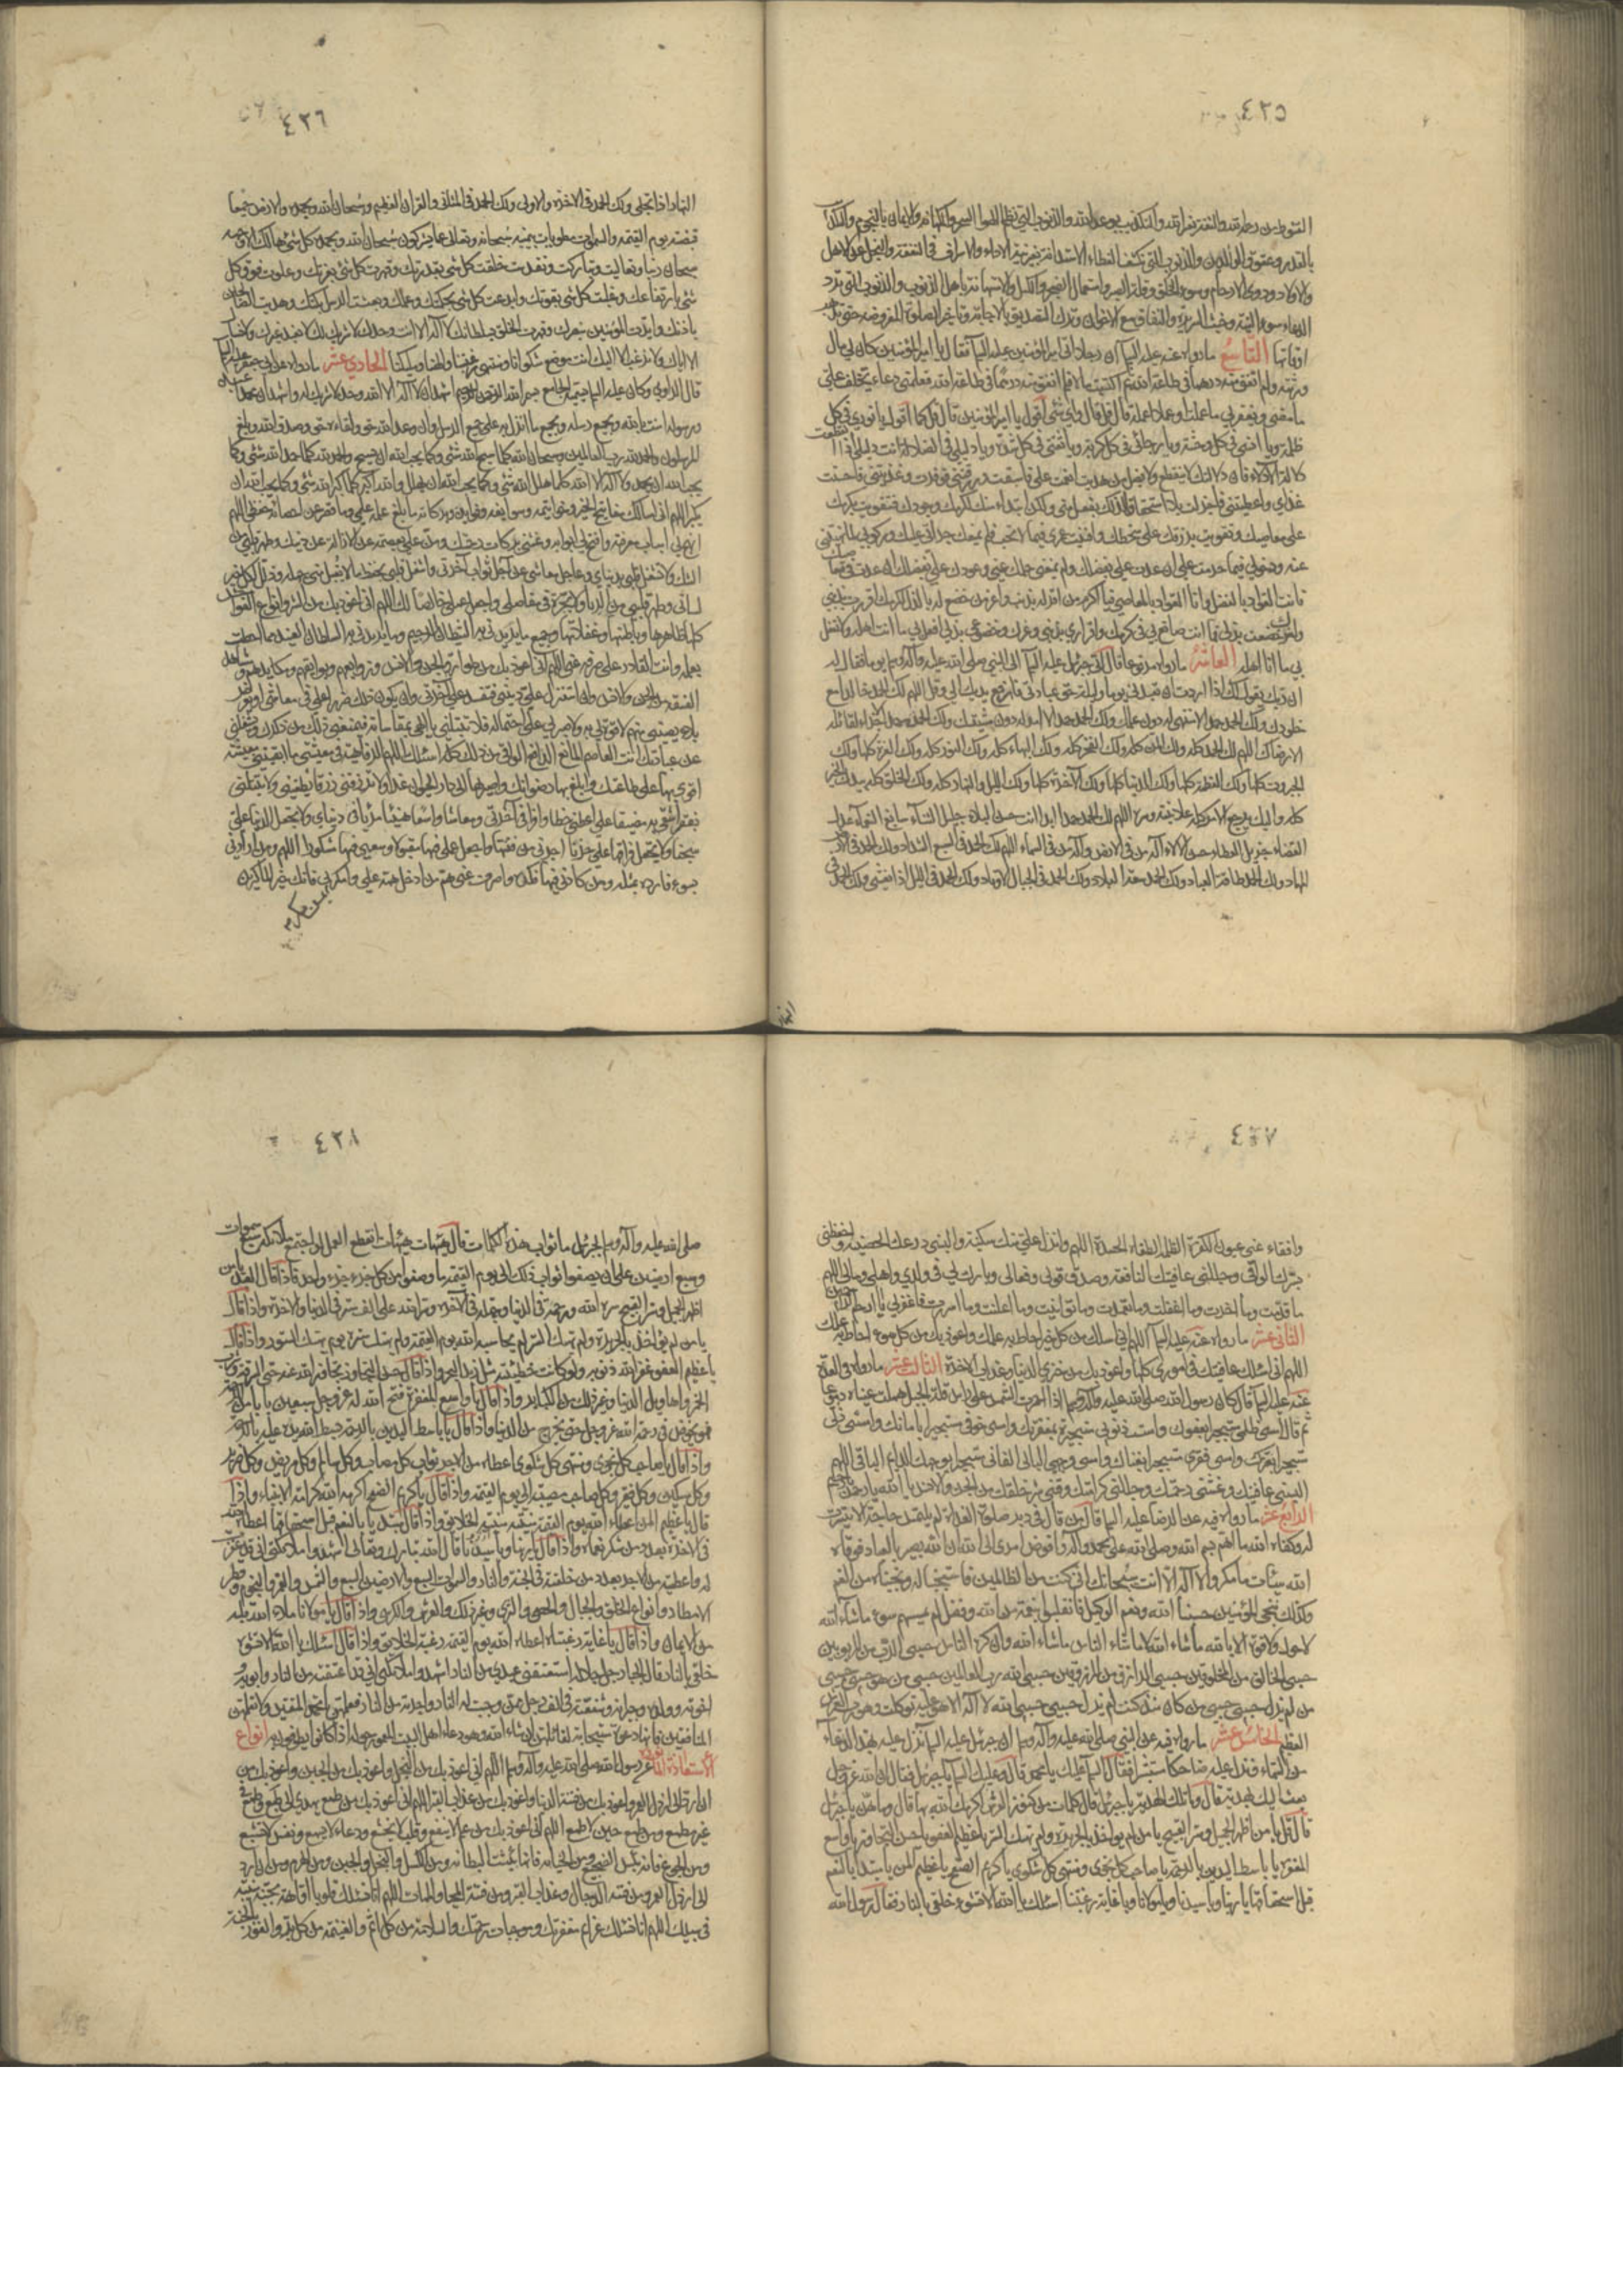 ٤٢٥
القنوط من رحمة الله والثقة بغير الله والتكذيب بوعد الله والذنوب التي تظلم الهواء السحر والكهانة والايمان بالنجوم والتكذيب
بالقدر وعقوق الوالدين والذنوب التي تكشف الغطاء الاستدانة بغير نية الاداء والاسراف في النفقة والبخل على الاهل
والاولاد وذوي الارحام وسوء الخلق وقلة الصبر واستعمال الضجر والكسل والاستهانة باهل الدين والذنوب التي ترد
الدعاء سوء النية وخبث السريرة والنفاق مع الاخوان وترك التصديق بالاجابة وتأخير الصلوة المفروضة حتى تذهب
اوقاتها التاسع ما رواه عنه عليه السلم ان رجلا اتى امير المؤمنين عليه السلم فقال يا امير المؤمنين كان لي مال
ورثته ولم انفق منه درهما في طاعة الله ثم اكتسبت مالا فلم انفق منه درهما في طاعة الله فعلمني دعاء يخلف علي
ما مضى ويغفر لي ما عملت او عملا اعمله قال قل قال واي شئ اقول يا امير المؤمنين قال قل كما اقول يا نوري في كل
ظلمة ويا انسي في كل وحشة ويا رجائي في كل كربة ويا ثقتي في كل شدة ويا دليلي في الضلالة انت دليلي اذا انقطعت
دلالة الادلاء فان دلالتك لا تنقطع ولا يضل من هديت انعمت علي فاسبغت ورزقتني فوفرت وغذيتني فاحسنت
غذاي واعطيتني فاجزلت بلا استحقاق لذلك بفعل مني ولكن ابتداء منك لكرمك وجودك فتقويت بكرمك
على معاصيك وتقويت برزقك على سخطك وافنيت عمري فيما لا تحب فلم يمنعك جراتي عليك وركوبي لما نهيتني
عنه ودخولي فيما حرمت علي ان عدت علي بفضلك ولم يمنعني حلمك عني وعودك علي بفضلك ان عدت في معاصيك
فانت العواد بالفضل وانا العواد بالمعاصي فيا اكرم من اقر له بذنب واعز من خضع له بالذل لكرمك اقررت بذنبي
ولعزك خضعت بذلي فما انت صانع بي في كرمك واقراري بذنبي وعزك وخضوعي بذلي افعل بي ما انت اهله ولا تفعل
بي ما انا اهله العاشر ما رواه مرفوعا قال اتى جبرئيل عليه السلم الى النبي صلى الله عليه وآله وسلم يوما فقال له
ان ربك يقول لك اذا اردت ان تعبدني يوما وليلة حق عبادتي فارفع يديك الي وقل اللهم لك الحمد خالدا مع
خلودك ولك الحمد حمدا لا منتهى له دون علمك ولك الحمد حمدا لا امد له دون مشيتك ولك الحمد حمدا لا جزاء لقائله
الا رضاك اللهم لك الحمد كله ولك المن كله ولك الفخر كله ولك البهاء كله ولك النور كله ولك العزة كلها ولك
الجبروت كلها ولك العظمة كلها ولك الدنيا كلها ولك الآخرة كلها ولك الليل والنهار كله ولك الخلق كله بيدك الخير
كله واليك يرجع الامر كله علانيته وسره اللهم لك الحمد حمدا ابدا انت حسن البلاء جليل الثناء سابغ النعماء عدل
القضاء جزيل العطاء حسن الآلاء اله من في الارض واله من في السماء اللهم لك الحمد في السبع الشداد ولك الحمد في الارض
المهاد ولك الحمد طاقة العباد ولك الحمد سعة البلاد ولك الحمد في الجبال الاوتاد ولك الحمد في الليل اذا يغشى ولك الحمد في
النهار
٤٢٦
النهار اذا تجلى ولك الحمد في الآخرة والاولى ولك الحمد في المثاني والقرآن العظيم وسبحان الله وبحمده والارض جميعا
قبضته يوم القيمة والسموات مطويات بيمينه سبحانه وتعالى عما يشركون سبحان الله وبحمده كل شئ هالك الا وجهه
سبحان ربنا وتعاليت وتباركت وتقدست خلقت كل شئ بقدرتك وقهرت كل شئ بعزتك وعلوت فوق كل
شئ بارتفاعك وغلبت كل شئ بقوتك وابدعت كل شئ بحكمتك وعلمك وبعثت الرسل بكتبك وهديت الصالحين
باذنك وايدت المؤمنين بنصرك وقهرت الخلق بسلطانك لا اله الا انت وحدك لا شريك لك لا نعبد غيرك ولا نسأل
الا اياك ولا نرغب الا اليك انت موضع شكوانا ومنتهى رغبتنا والهنا ومليكنا الحادي عشر ما رواه عن ابي جعفر عليه السلم
قال الراوي وكان عليه السلم يسميه الجامع بسم الله الرحمن الرحيم اشهد ان لا اله الا الله وحده لا شريك له واشهد ان محمدا عبده
ورسوله امنت بالله وبجميع رسله وبجميع ما انزل به على جميع الرسل وان وعد الله حق ولقاءه حق وصدق الله وبلغ
المرسلون والحمد لله رب العالمين وسبحان الله كلما سبح الله شئ وكما يحب الله ان يسبح والحمد لله كلما حمد الله شئ وكما
يحب الله ان يحمد ولا اله الا الله كلما هلل الله شئ وكما يحب الله ان يهلل والله اكبر كلما كبر الله شئ وكما يحب الله ان
يكبر اللهم اني اسالك مفاتيح الخير وخواتيمه وسوابغه وفوايده وبركاته ما بلغ علمه علمي وما قصر عن احصائه حفظي اللهم
انهج لي اسباب معرفته وافتح لي ابوابه وغشني بركات رحمتك ومن علي بعصمة عن الازالة عن دينك وطهر قلبي من
الشك ولا تشغل قلبي بدنياي وعاجل معاشي عن آجل ثواب آخرتي واشغل قلبي بحفظ ما لا يقبل مني جهله وذلل لكل خير
لساني وطهر قلبي من الرياء ولا تجره في مفاصلي واجعل عملي خالصا لك اللهم اني اعوذ بك من الشر وانواع الفواحش
كلها ظاهرها وباطنها وغفلاتها وجميع ما يريدني به الشيطان الرجيم وما يريدني به السلطان العنيد مما احطت
بعلمه وانت القادر على صرفه عني اللهم اني اعوذ بك من طوارق الجن والانس وزوابعهم وبوائقهم ومكايدهم ومشاهد
الفسقة من الجن والانس وان استزل عن ديني فتفسد علي آخرتي وان يكون ذلك ضررا علي في معاشي او تعرض
بلاء يصيبني منهم لا قوة لي به ولا صبر لي على احتماله فلا تبتليني يا الهي بمقاساته فيمنعني ذلك من ذكرك ويشغلني
عن عبادتك انت العاصم المانع الدافع الواقي من ذلك كله اسئلك اللهم الرفاهية في معيشتي ما ابقيتني معيشة
اقوى بها على طاعتك وابلغ بها رضوانك واصير بها الى دار الحيوان غدا ولا ترزقني رزقا يطغيني ولا تبتليني
بفقر اشقى به مضيقا علي اعطني حظا وافرا في آخرتي ومعاشا واسعا هنيئا مريئا في دنياي ولا تجعل الدنيا علي
سجنا ولا تجعل فراقها علي حزنا اجرني من فتنتها واجعل عملي فيها مقبولا وسعيي فيها مشكورا اللهم ومن ارادني
بسوء فارده بمثله ومن كادني فيها فكده واصرف عني هم من ادخل همه علي وامكر بمن مكر بي فانك خير الماكرين
٤٢٧
وافقاء عني عيون الكفرة الظلمة الطغاة الحسدة اللهم وانزل علي منك سكينة والبسني درعك الحصينة واحفظني
بسترك الواقي وجللني عافيتك النافعة وصدق قولي وفعالي وبارك لي في ولدي واهلي ومالي اللهم
ما قدمت وما اخرت وما اغفلت وما تعمدت وما توانيت وما اعلنت وما اسررت فاغفر لي يا ارحم الراحمين
الثاني عشر ما رواه عنه عليه السلم اللهم اني اسئلك من كل خير احاط به علمك واعوذ بك من كل سوء احاط به علمك
اللهم اني اسئلك عافيتك في اموري كلها واعوذ بك من خزي الدنيا وعذاب الآخرة الثالث عشر ما رواه في العدة
عنه عليه السلم قال كان رسول الله صلى الله عليه وآله وسلم اذا احمرت الشمس على راس قلة الجبل هملت عيناه دموعا
ثم قال امسى ظلمي مستجيرا بعفوك وامست ذنوبي مستجيرة بمغفرتك وامسى خوفي مستجيرا بامانك وامسى ذلي
مستجيرا بعزك وامسى فقري مستجيرا بغناك وامسى وجهي البالي الفاني مستجيرا بوجهك الدائم الباقي اللهم
البسني عافيتك وغشني رحمتك وجللني كرامتك وقني شر خلقك من الجن والانس يا الله يا رحمن يا رحيم
الرابع عشر ما رواه فيه عن الرضا عليه السلم قال من قال في دبر صلوة الغداة لم يلتمس حاجة الا تيسرت
له وكفاه الله ما اهمه بسم الله وصلى الله على محمد وآله وافوض امري الى الله ان الله بصير بالعباد فوقاه
الله سيئات ما مكروا لا اله الا انت سبحانك اني كنت من الظالمين فاستجبنا له ونجيناه من الغم
وكذلك ننجي المؤمنين حسبنا الله ونعم الوكيل فانقلبوا بنعمة من الله وفضل لم يمسسهم سوء ما شاء الله
لا حول ولا قوة الا بالله ما شاء الله لا ما شاء الناس ما شاء الله وان كره الناس حسبي الرب من المربوبين
حسبي الخالق من المخلوقين حسبي الرازق من المرزوقين حسبي الله رب العالمين حسبي من هو حسبي حسبي
من لم يزل حسبي حسبي من كان منذ كنت لم يزل حسبي حسبي الله لا اله الا هو عليه توكلت وهو رب العرش
العظيم الخامس عشر ما رواه فيه عن النبي صلى الله عليه وآله وسلم ان جبرئيل عليه السلم نزل عليه بهذا الدعاء
من السماء ونزل عليه ضاحكا مستبشرا فقال السلم عليك يا محمد قال وعليك السلم يا جبرئيل فقال ان الله عز وجل
بعث اليك بهدية فقال وما تلك الهدية يا جبرئيل قال كلمات من كنوز العرش اكرمك الله بها قال وما هن يا جبرئيل
قال قل يا من اظهر الجميل وستر القبيح يا من لم يؤاخذ بالجريرة ولم يهتك الستر يا عظيم العفو يا حسن التجاوز يا واسع
المغفرة يا باسط اليدين بالرحمة يا صاحب كل نجوى ومنتهى كل شكوى يا كريم الصفح يا عظيم المن يا مبتدئا بالنعم
قبل استحقاقها يا ربنا ويا سيدنا ويا مولانا ويا غاية رغبتنا اسئلك يا الله الا تشوه خلقي بالنار فقال رسول الله
٤٢٨
صلى الله عليه وآله وسلم يا جبرئيل ما ثواب هذه الكلمات قال هيهات هيهات انقطع العمل لو اجتمع ملائكة سبع سموات
وسبع ارضين على ان يصفوا ثواب ذلك الى يوم القيمة ما وصفوا من كل جزء جزء واحد فاذا قال العبد يا من
اظهر الجميل وستر القبيح ستره الله ورحمه في الدنيا وجمله في الآخرة وستر الله عليه الف ستر في الدنيا والآخرة واذا قال
يا من لم يؤاخذ بالجريرة ولم يهتك الستر لم يحاسبه الله يوم القيمة ولم يهتك ستره يوم يهتك الستور واذا قال
يا عظيم العفو غفر الله ذنوبه ولو كانت خطيئته مثل زبد البحر واذا قال يا حسن التجاوز تجاوز الله عنه حتى السرقة وشرب
الخمر واهاويل الدنيا وغير ذلك من الكبائر واذا قال يا واسع المغفرة فتح الله له عز وجل سبعين بابا من الرحمة
فهو يخوض في رحمة الله عز وجل حتى يخرج من الدنيا واذا قال يا باسط اليدين بالرحمة بسط الله يده عليه بالرحمة
واذا قال يا صاحب كل نجوى ومنتهى كل شكوى اعطاه من الاجر ثواب كل مصاب وكل سالم وكل مريض وكل ضرير
وكل مسكين وكل فقير وكل صاحب مصيبة الى يوم القيمة واذا قال يا كريم الصفح اكرمه الله كرامة الانبياء واذا
قال يا عظيم المن اعطاه الله يوم القيمة منيته ومنية الخلايق واذا قال يا مبتدئا بالنعم قبل استحقاقها اعطاه الله
في الآخرة بعدد من شكر نعماه واذا قال يا ربنا ويا سيدنا قال الله تبارك وتعالى اشهدوا ملائكتي اني قد غفرت
له واعطيته من الاجر بعدد من خلقته في الجنة والنار والسموات السبع والارضين السبع والشمس والقمر والنجوم وقطر
الامطار وانواع الخلق والجبال والحصى والثرى وغير ذلك والعرش والكرسي واذا قال يا مولانا ملاء الله قلبه
من الايمان واذا قال يا غاية رغبتنا اعطاه الله يوم القيمة رغبة الخلايق واذا قال اسئلك يا الله الا تشوه
خلقي بالنار قال الجبار جل جلاله استعتقني عبدي من النار اشهدوا ملائكتي اني قد اعتقته من النار وابويه
اخوته وولده وجيرانه وشفعته في الف رجل ممن وجبت له النار واجرته من النار فعلمهن يا محمد المتقين ولا تعلمهن
المنافقين فانها دعوة مستجابة لقائلهن ان شاء الله وهو دعاء اهل البيت المعمور حوله اذا كانوا يطوفون به انواع
الاستعاذة المأثورة عن رسول الله صلى الله عليه وآله وسلم اللهم اني اعوذ بك من البخل واعوذ بك من الجبن واعوذ بك من
ان ارد الى ارذل العمر واعوذ بك من فتنة الدنيا واعوذ بك من عذاب القبر اللهم اني اعوذ بك من طمع يهدي الى طبع وطمع في
غير مطمع ومن طمع حين لا مطمع اللهم اني اعوذ بك من علم لا ينفع وقلب لا يخشع ودعاء لا يسمع ونفس لا تشبع
ومن الجوع فانه بئس الضجيع ومن الخيانة فانها بئست البطانة ومن الكسل والبخل والجبن ومن الهرم ومن ان ارد
الى ارذل العمر ومن فتنة الدجال وعذاب القبر ومن فتنة المحيا والممات اللهم انا نسئلك قلوبا اواهة مخبتة منيبة
في سبيلك اللهم انا نسئلك عزائم مغفرتك وموجبات رحمتك والسلامة من كل اثم والغنيمة من كل بر والفوز بالجنة